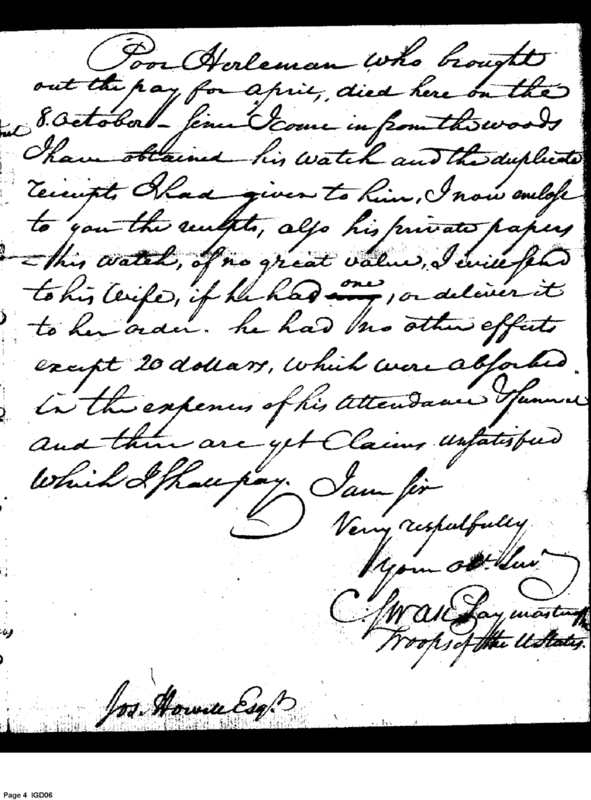 Poor Herleman who brought
out the pay for April, died here on the
8. October – Since I came in from the woods
I have obtained his watch and the duplicate
receipts I had given to him, I now enclose
to you the receipts, also his private papers
– his watch, of no great value, I will send
to his Wife, if he had one, or deliver it
to her order. he had no other effects
except 20 dollars, which were absorbed
in the expences of his Attendance & funeral
and there are yet Claims unsatisfied
which I shall pay. I am Sir
Very respectfully
Your Obt. Servt
C Swan Paymaster
Troops of the U States.
Jos. Howell Esqr.
Page 4 IGD06